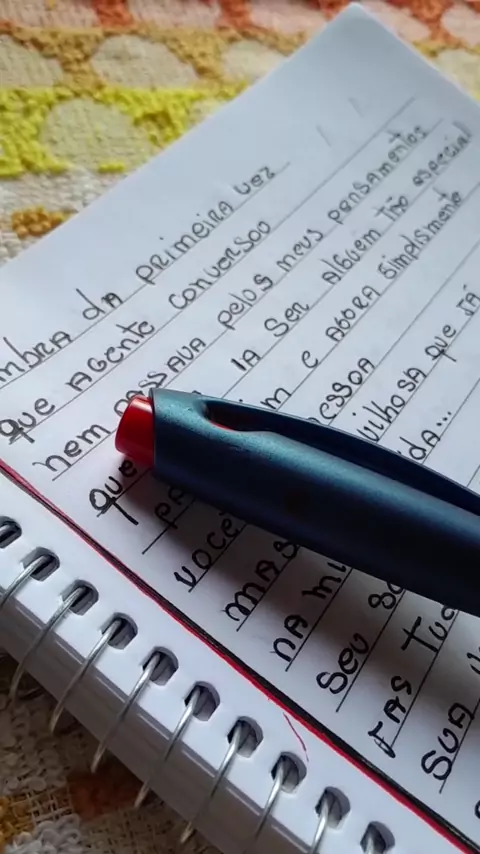 mbra da primeira vez
que agente conversou
nem passava pelos meus pensamentos
que ia ser alguem tão especial
pa m e agora simplismente
você essoa
mas vilhosa que já
na mi da...
seu so
fas tud
sua